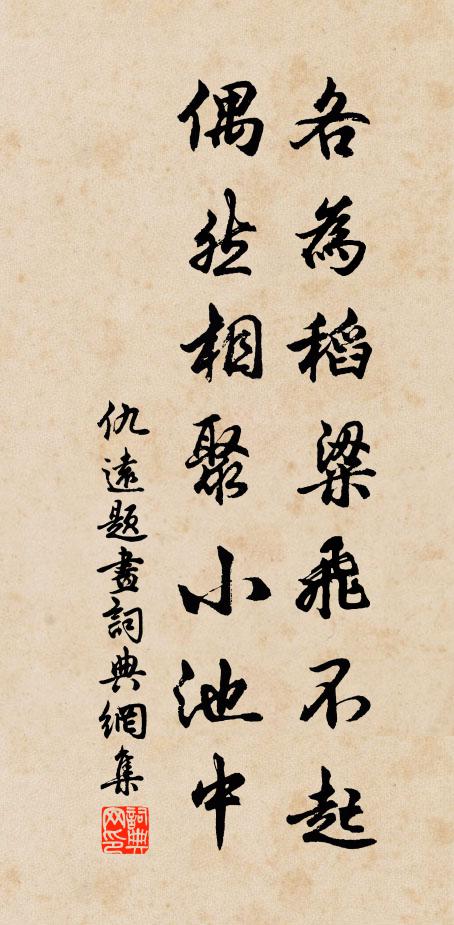 各為稻粱飛不起
偶然相聚小池中
仇遠題畫詞典網集
詞典网印